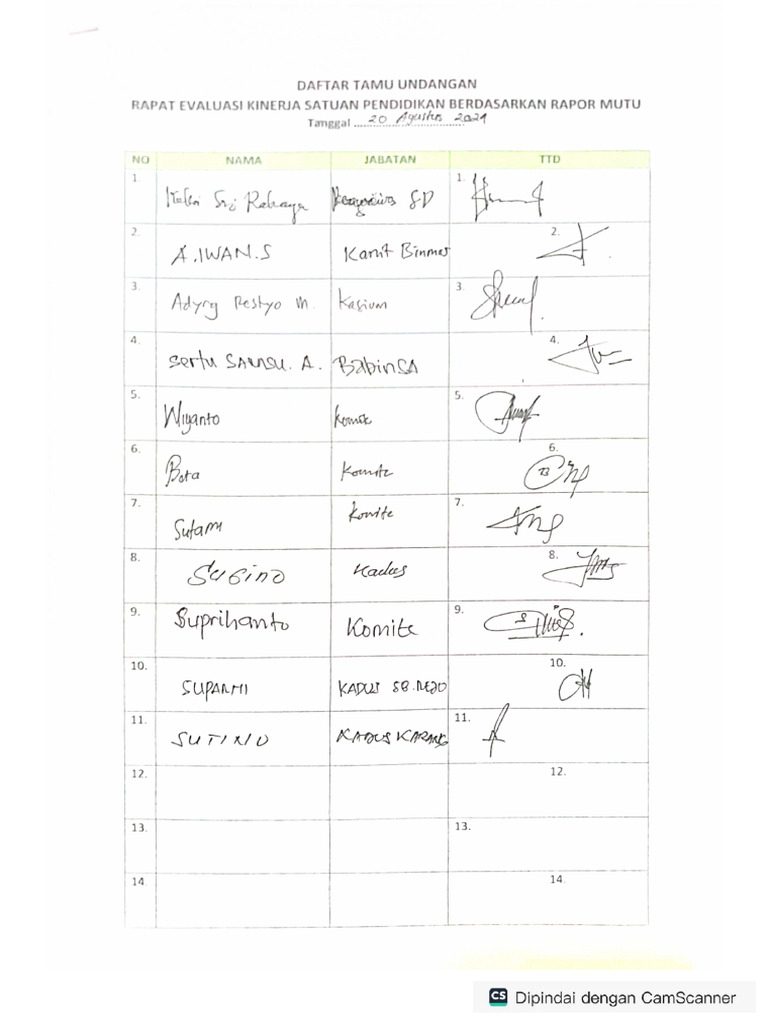 DAFTAR TAMU UNDANGAN
RAPAT EVALUASI KINERJA SATUAN PENDIDIKAN BERDASARKAN RAPOR MUTU
Tanggal ....20 Agustus 2024
NO NAMA JABATAN TTD
1. Sri Rahayu SD 1.
2. A. IWAN. S Kanit Binmas 2.
3. Restyo M. Kasium 3.
4. Sertu SAMSU. A. BabinSA 4.
5. Wiyanto Komite 5.
6. Bota Komite 6.
7. Sutami Komite 7.
8. SUGINO Kadus 8.
9. Suprihanto Komite 9.
10. SUPARMI KADUS SB. REJO 10.
11. SUTINO KADUS KARANG 11.
12. 12.
13. 13.
14. 14.
CS Dipindai dengan CamScanner